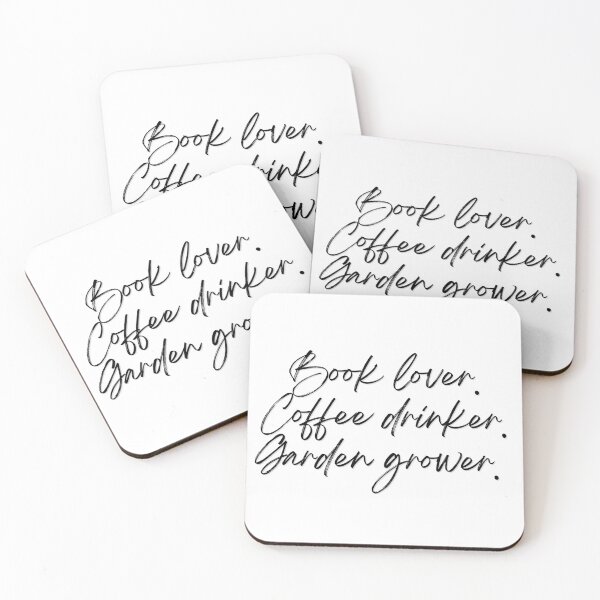 Book lover.
Coffee drinker.
Garden grower.
Book lover.
Coffee drinker.
Garden grower.
Book lover.
Coffee drinker.
Garden gro
Book lover.
Coffee drinker.
Garden grower.